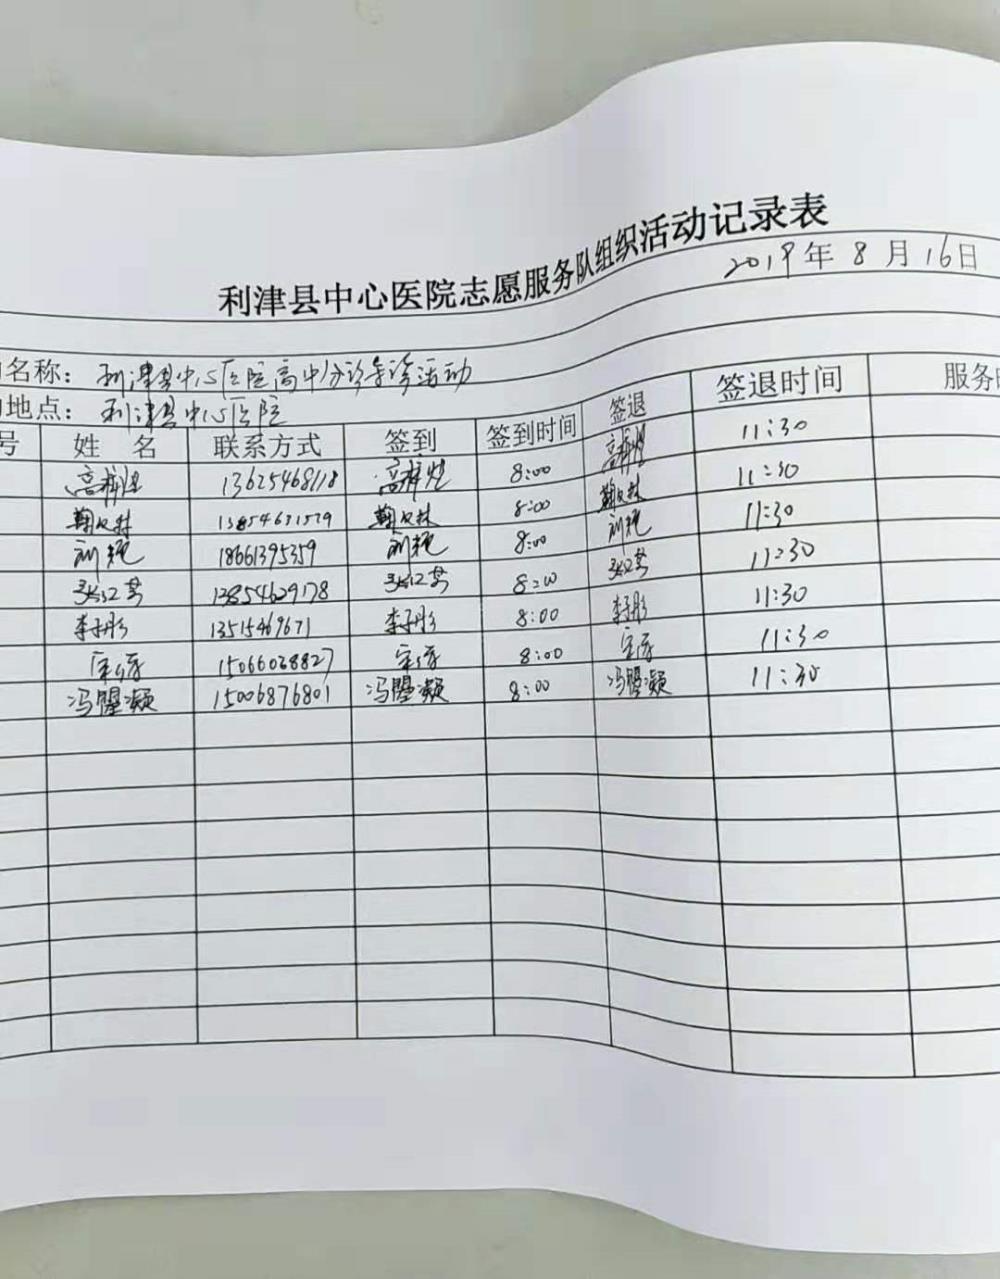 利津县中心医院志愿服务队组织活动记录表
2019年8月16日
名称：利津县中心医院高中分诊导诊活动
地点：利津县中心医院
号 姓 名 联系方式 签到 签到时间 签退 签退时间 服务
高梓煜 13625468118 高梓煜 8:00 高梓煜 11:30
13854631579 8:00 11:30
刘艳 18661395359 刘艳 8:00 刘艳 11:30
张江英 13854629178 张江英 8:00 张江英 11:30
李子彤 13515469671 李子彤 8:00 李子彤 11:30
15066028827 8:00 11:30
冯曌凝 15006876801 冯曌凝 8:00 冯曌凝 11:30